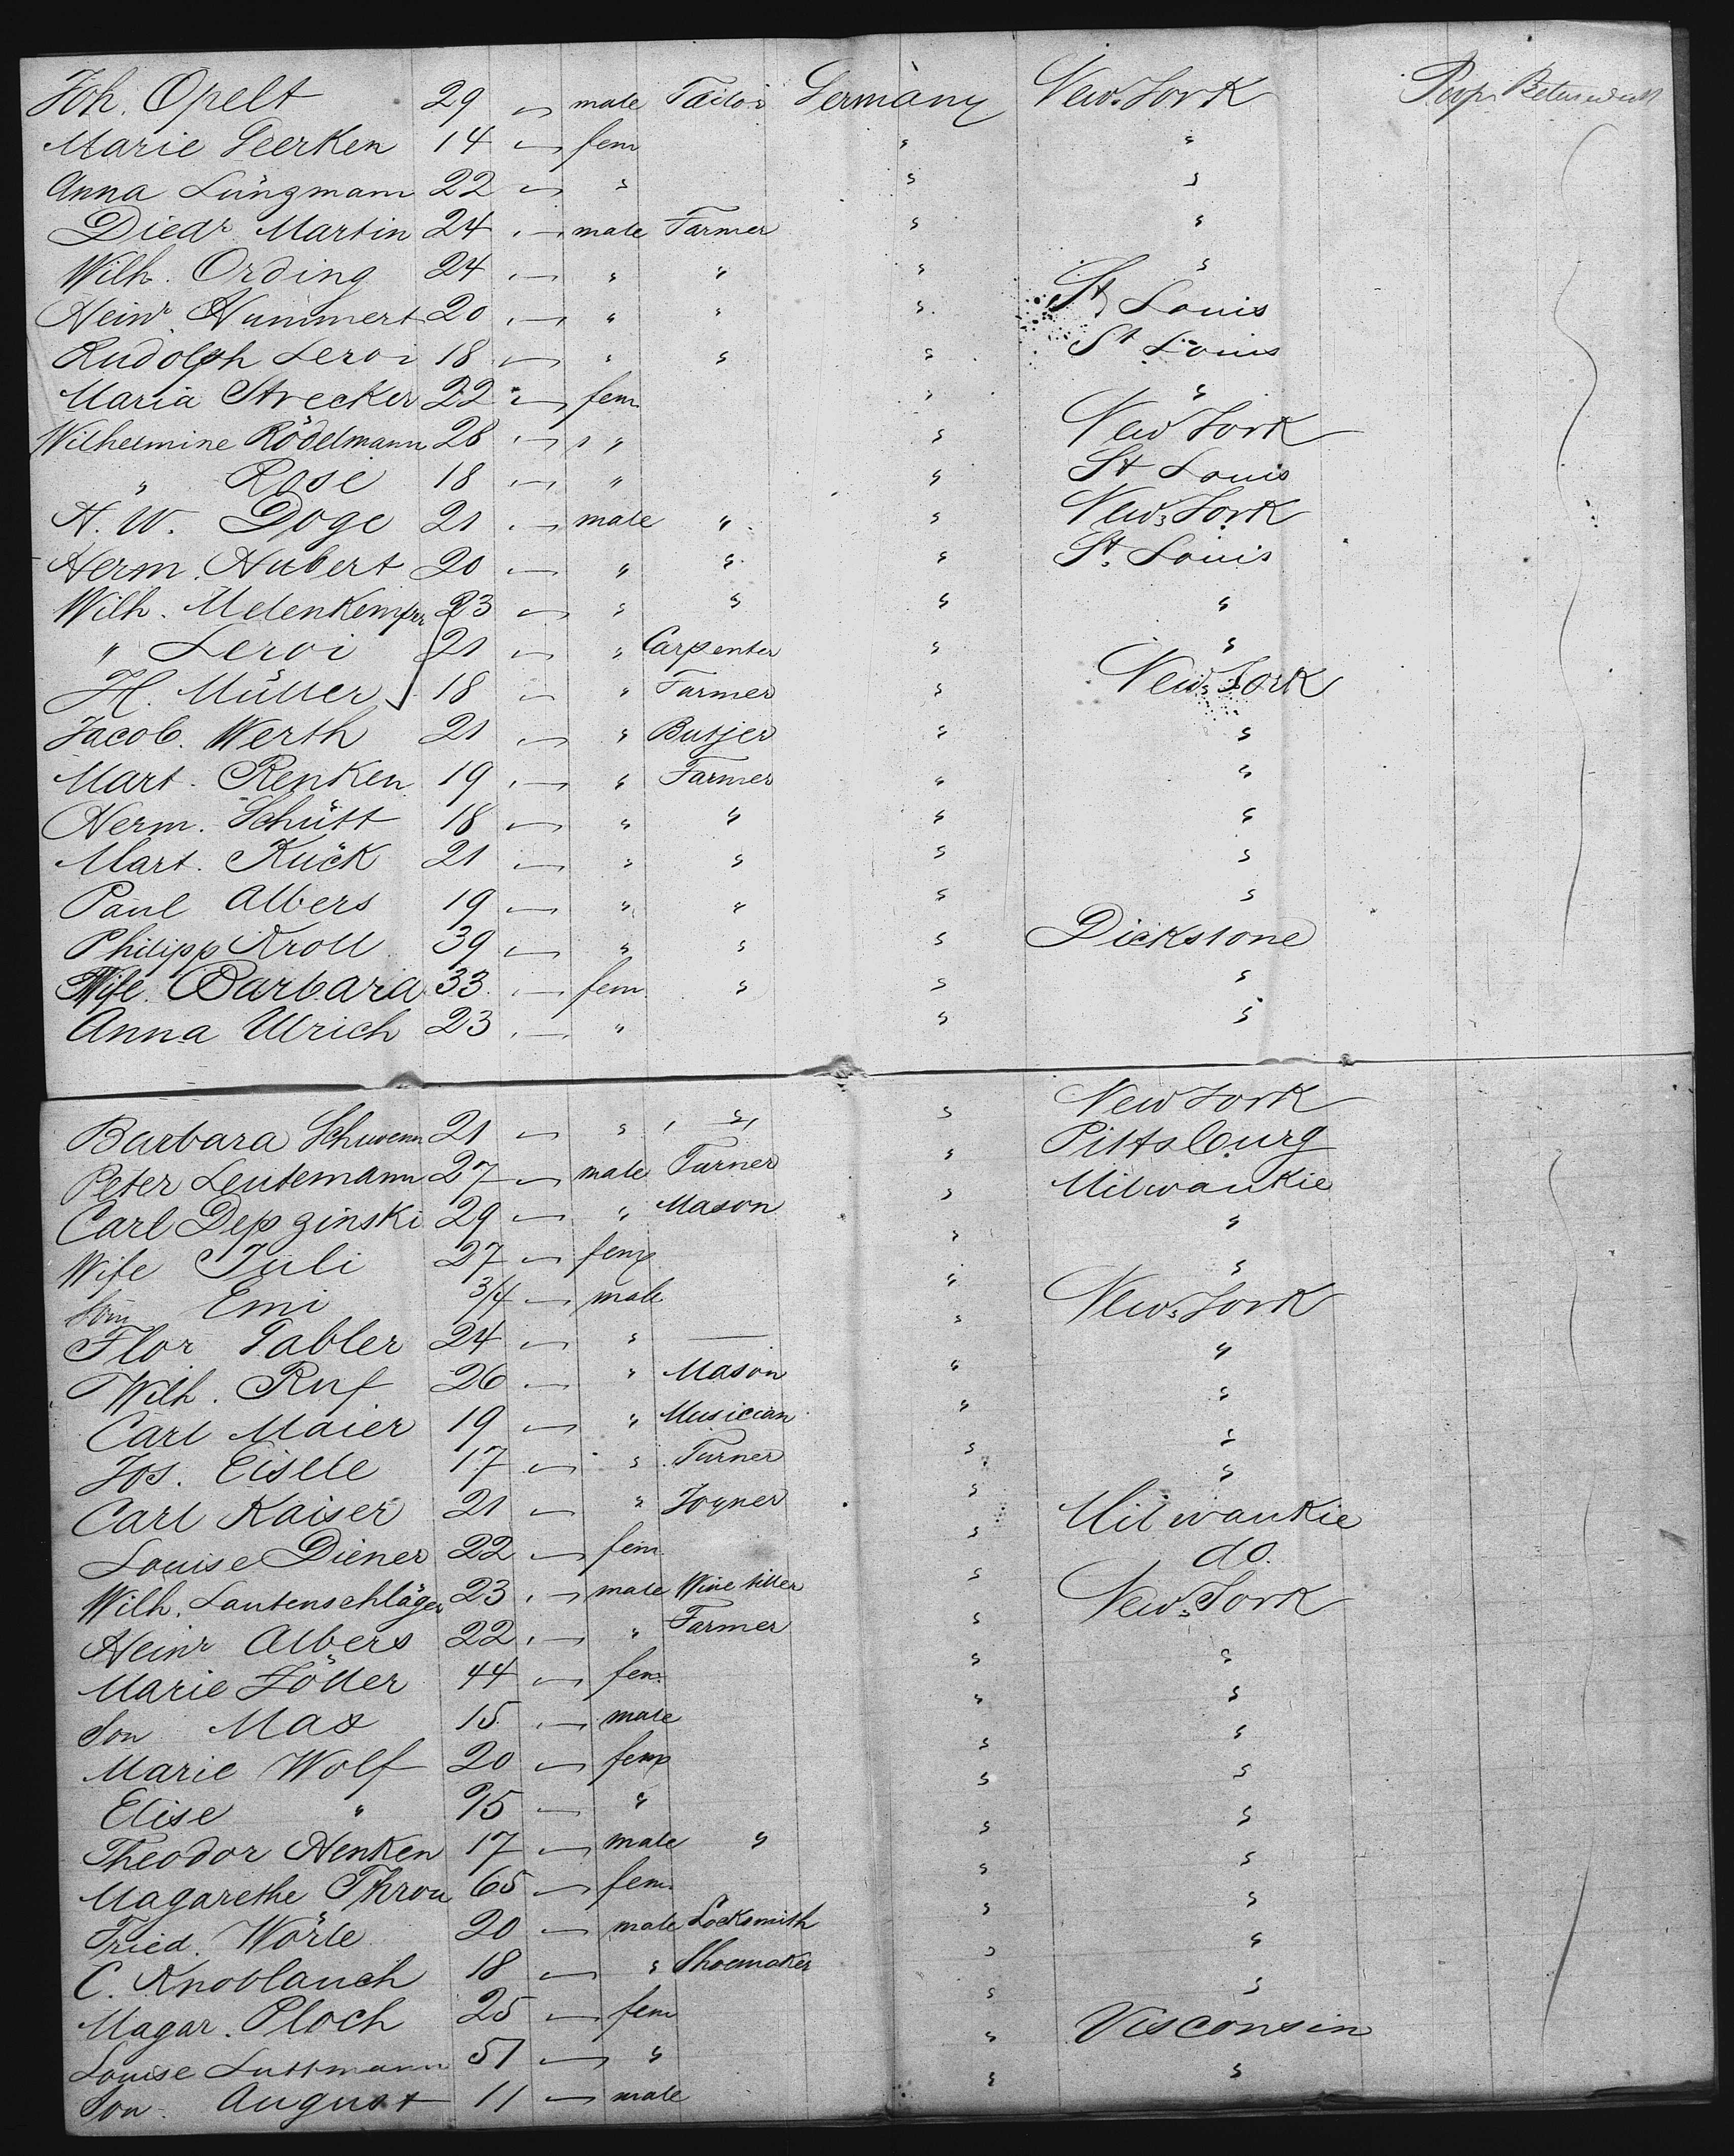 Joh. Opelt 29 — male Tailor Germany New-York
Marie Geerken 14 — fem " "
Anna Lüngmann 22 — " " "
Diedr Martin 24 — male Farmer " "
Wilh. Ording 24 — " " " "
Heinr. Hummert 20 — " " " St Louis
Rudolph Leroi 18 — " " " St Louis
Maria Strecker 22 — fem " "
Wilhelmine Rödelmann 28 — " " New York
" Rose 18 — " " St Louis
H. W. Doge 21 — male " " New-York
Herm. Hubert 20 — " " " St. Louis
Wilh. 23 — " " " "
" Leroi 21 — " Carpenter " "
H. Müller 18 — " Farmer " New-York
Jacob. Werth 21 — " Butjer " "
Mart. Renken 19 — " Farmer " "
Herm. Schütt 18 — " " " "
Mart. Kück 21 — " " " "
Paul Albers 19 — " " " "
Philipp Kroll 39 — " " " Dickstone
Wife. Barbara 33 — fem " " "
Anna Ulrich 23 — " " "
Barbara 21 — " " " New York
Peter Leutemann 27 — male Turner " Pittsburg
Carl Depzinski 29 — " Mason " Milwaukie
Wife Juli 27 — fem " "
Son Emi 3/4 — male " "
Flor Gabler 24 — " — " New-York
Wilh. Ruf 26 — " Mason " "
Carl Maier 19 — " Musician " "
Jos. Eisele 17 — " Turner " "
Carl Kaiser 21 — " Joyner " "
Louise Diener 22 — fem " Milwaukie
Wilh. Lautenschläger 23 — male Wine tiller " do.
Heinr Albers 22 — " Farmer " New-York
Marie Zöller 44 — fem. " "
Son Max 15 — male " "
Marie Wolf 20 — fem " "
Elise " — " " "
Theodor Henken 17 — male " " "
Magarethe 65 — fem. " "
Fried. Wörle 20 — male Locksmith " "
C. Knoblauch 18 — " Shoemaker " "
Magar. Ploch 25 — fem " "
Louise Luttmann 51 — " " Visconsin
Son. August 11 — male " "